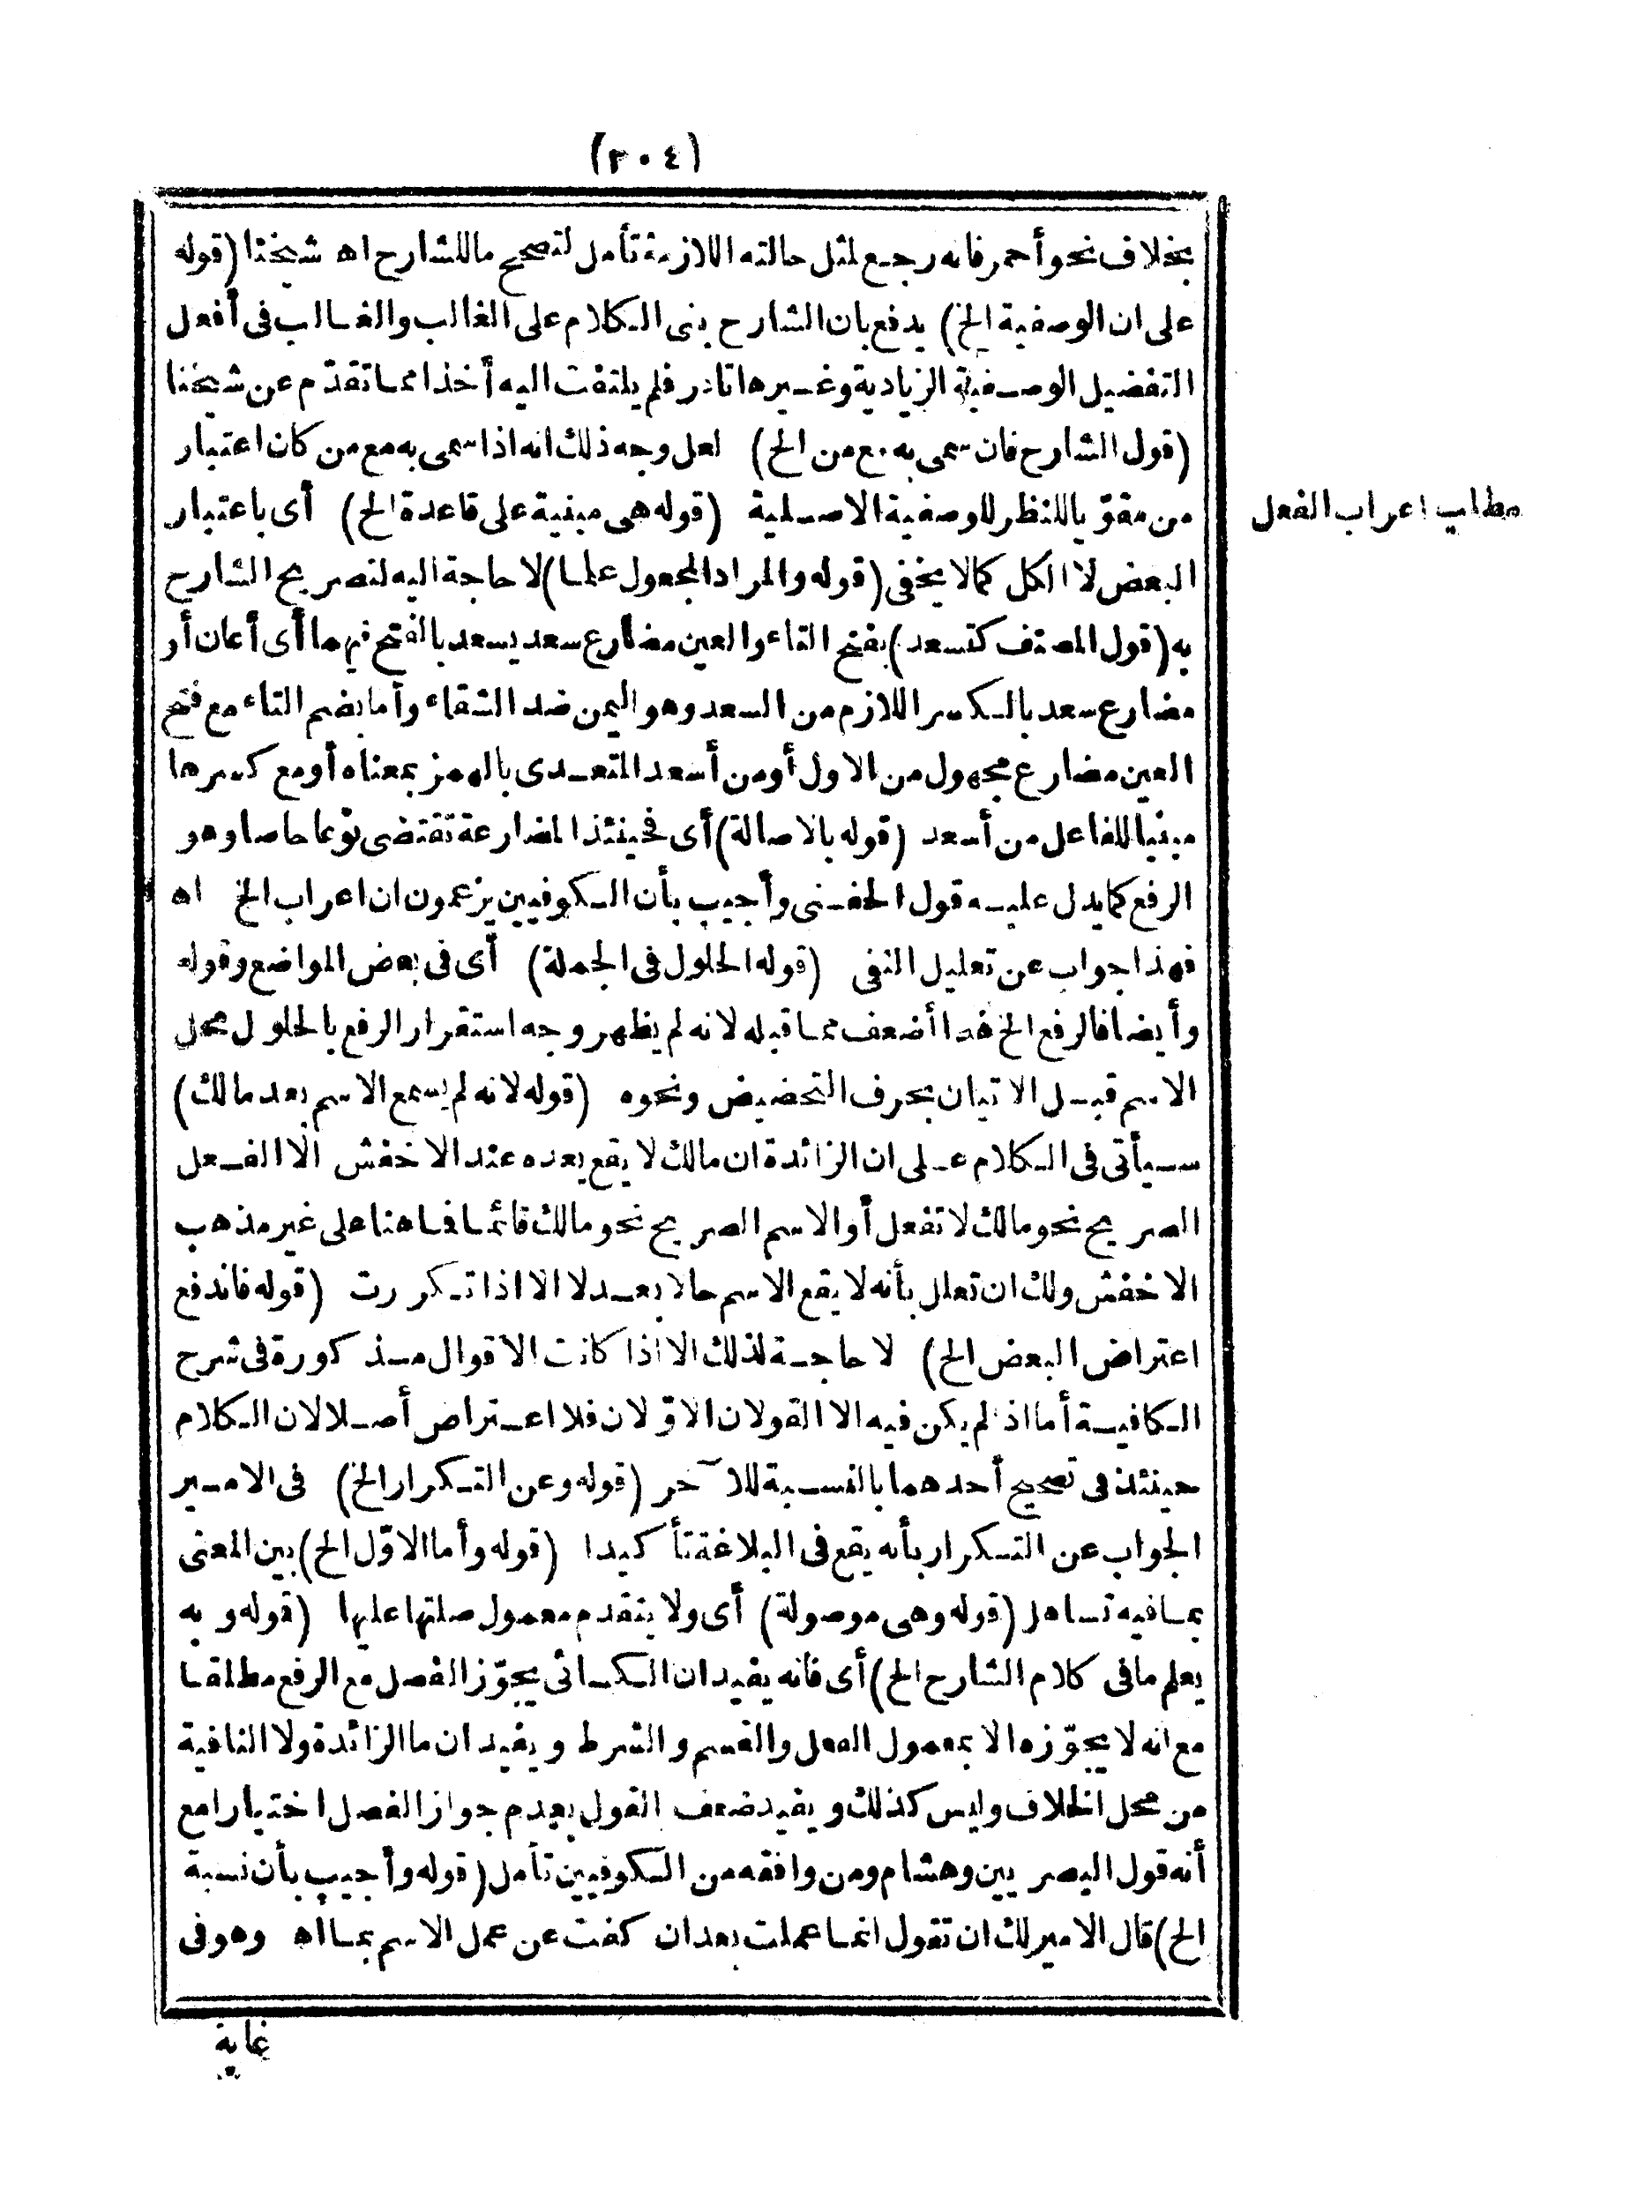 (٢٠٤)
بخلاف نحو أحمر فانه رجع لمثل حالته اللازمة تأمل لتصحيح ما للشارح اه شيخنا (قوله
على ان الوصفية الخ) يدفع بان الشارح بنى الكلام على الغالب والغالب فى أفعل
التفضيل الوصفية الزيادية وغيرها نادر فلم يلتفت اليه أخذا مما تقدّم عن شيخنا
(قول الشارح فان سمى به مع من الخ) لعل وجه ذلك انه اذا سمى به مع من كان اعتبار
من مقوّيا للنظر للوصفية الاصلية (قوله هى مبنية على قاعدة الخ) أى باعتبار
مطلب اعراب الفعل
البعض لا الكل كما لا يخفى (قوله والمراد المجعول علما) لا حاجة اليه لتصريح الشارح
به (قول المصنف كتسعد) بفتح التاء والعين مضارع سعد يسعد بالفتح فيهما أى أعان أو
مضارع سعد بالكسر اللازم من السعد وهو اليمن ضد الشقاء وأما بضم التاء مع فتح
العين مضارع مجهول من الاول أو من أسعد المتعدى بالهمز بمعناه أو مع كسرها
مبنيا للفاعل من أسعد (قوله بالاصالة) أى فحينئذ المضارعة تقتضى نوعا خاصا وهو
الرفع كما يدل عليه قول الحفنى وأجيب بأن الكوفيين يزعمون ان اعراب الخ اه
فهذا جواب عن تعليل النفى (قوله الحلول فى الجملة) أى فى بعض المواضع وقوله
وأيضا فالرفع الخ هذا أضعف مما قبله لانه لم يظهر وجه استقرار الرفع بالحلول محل
الاسم قبل الاتيان بحرف التحضيض ونحوه (قوله لانه لم يسمع الاسم بعد مالك)
سيأتى فى الكلام على ان الزائدة ان مالك لا يقع بعده عند الاخفش الا الفعل
الصريح نحو مالك لا تفعل أو الاسم الصريح نحو مالك قائما فما هنا على غير مذهب
الاخفش ولك ان تعلل بأنه لا يقع الاسم حالا بعد لا الا اذا تكررت (قوله فاندفع
اعتراض البعض الخ) لا حاجة لذلك الا اذا كانت الاقوال مذكورة فى شرح
الكافية أما اذ لم يكن فيه الا القولان الاوّلان فلا اعتراض أصلا لان الكلام
حينئذ فى تصحيح أحدهما بالنسبة للآخر (قوله وعن التكرار الخ) فى الامير
الجواب عن التكرار بأنه يقع فى البلاغة تأكيدا (قوله وأما الاوّل الخ) بين المعنى
بما فيه تساهل (قوله وهى موصولة) أى ولا يتقدم معمول صلتها عليها (قوله وبه
يعلم ما فى كلام الشارح الخ) أى فانه يفيد ان الكسائى يجوّز الفصل مع الرفع مطلقا
مع انه لا يجوّزه الا بمعمول الفعل والقسم والشرط ويفيد ان ما الزائدة ولا النافية
من محل الخلاف وليس كذلك ويفيد ضعف القول بعدم جواز الفصل اختيارا مع
أنه قول البصريين وهشام ومن وافقه من الكوفيين تأمل (قوله وأجيب بأن نسبة
الخ) قال الامير لك ان تقول انما عملت بعد ان كفت عن عمل الاسم بما اه وهو فى
غاية